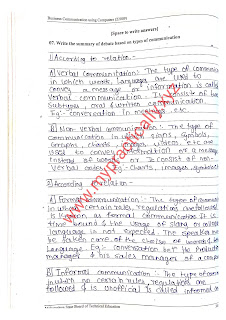 Business Communication using Computers (22009)
[Space to write answers]
07. Write the summary of debate based on types of communication
1) According to relation -
a) Verbal Communication: The type of commun
in which words, language are used to
convey a message or information is called
verbal communication. It consists of two
subtypes, oral & written communication.
Eg:- conversation in meetings, etc.
B) Non-verbal communication:- The type of
communication in which signs, symbols,
Graphs, charts, images, videos, etc are
used to convey information or a message
instead of words. It consist of non-
verbal codes. Eg:- charts, images, symbols
2) According relation -
A) Formal communication:- The types of commun
in which certain rules, regulations are followed
is known as formal communication. It is
time bound & the usage of slang or
language is not expected. The speaker
be taken care of the choice of words &
Language. Eg:- conversation betn the
manager & his sales manager of a comp
B) Informal communication:- The type of com
in which no certain rules, regulations are
followed & is unofficial is called informal
Board of Technical Education
www.mypractically